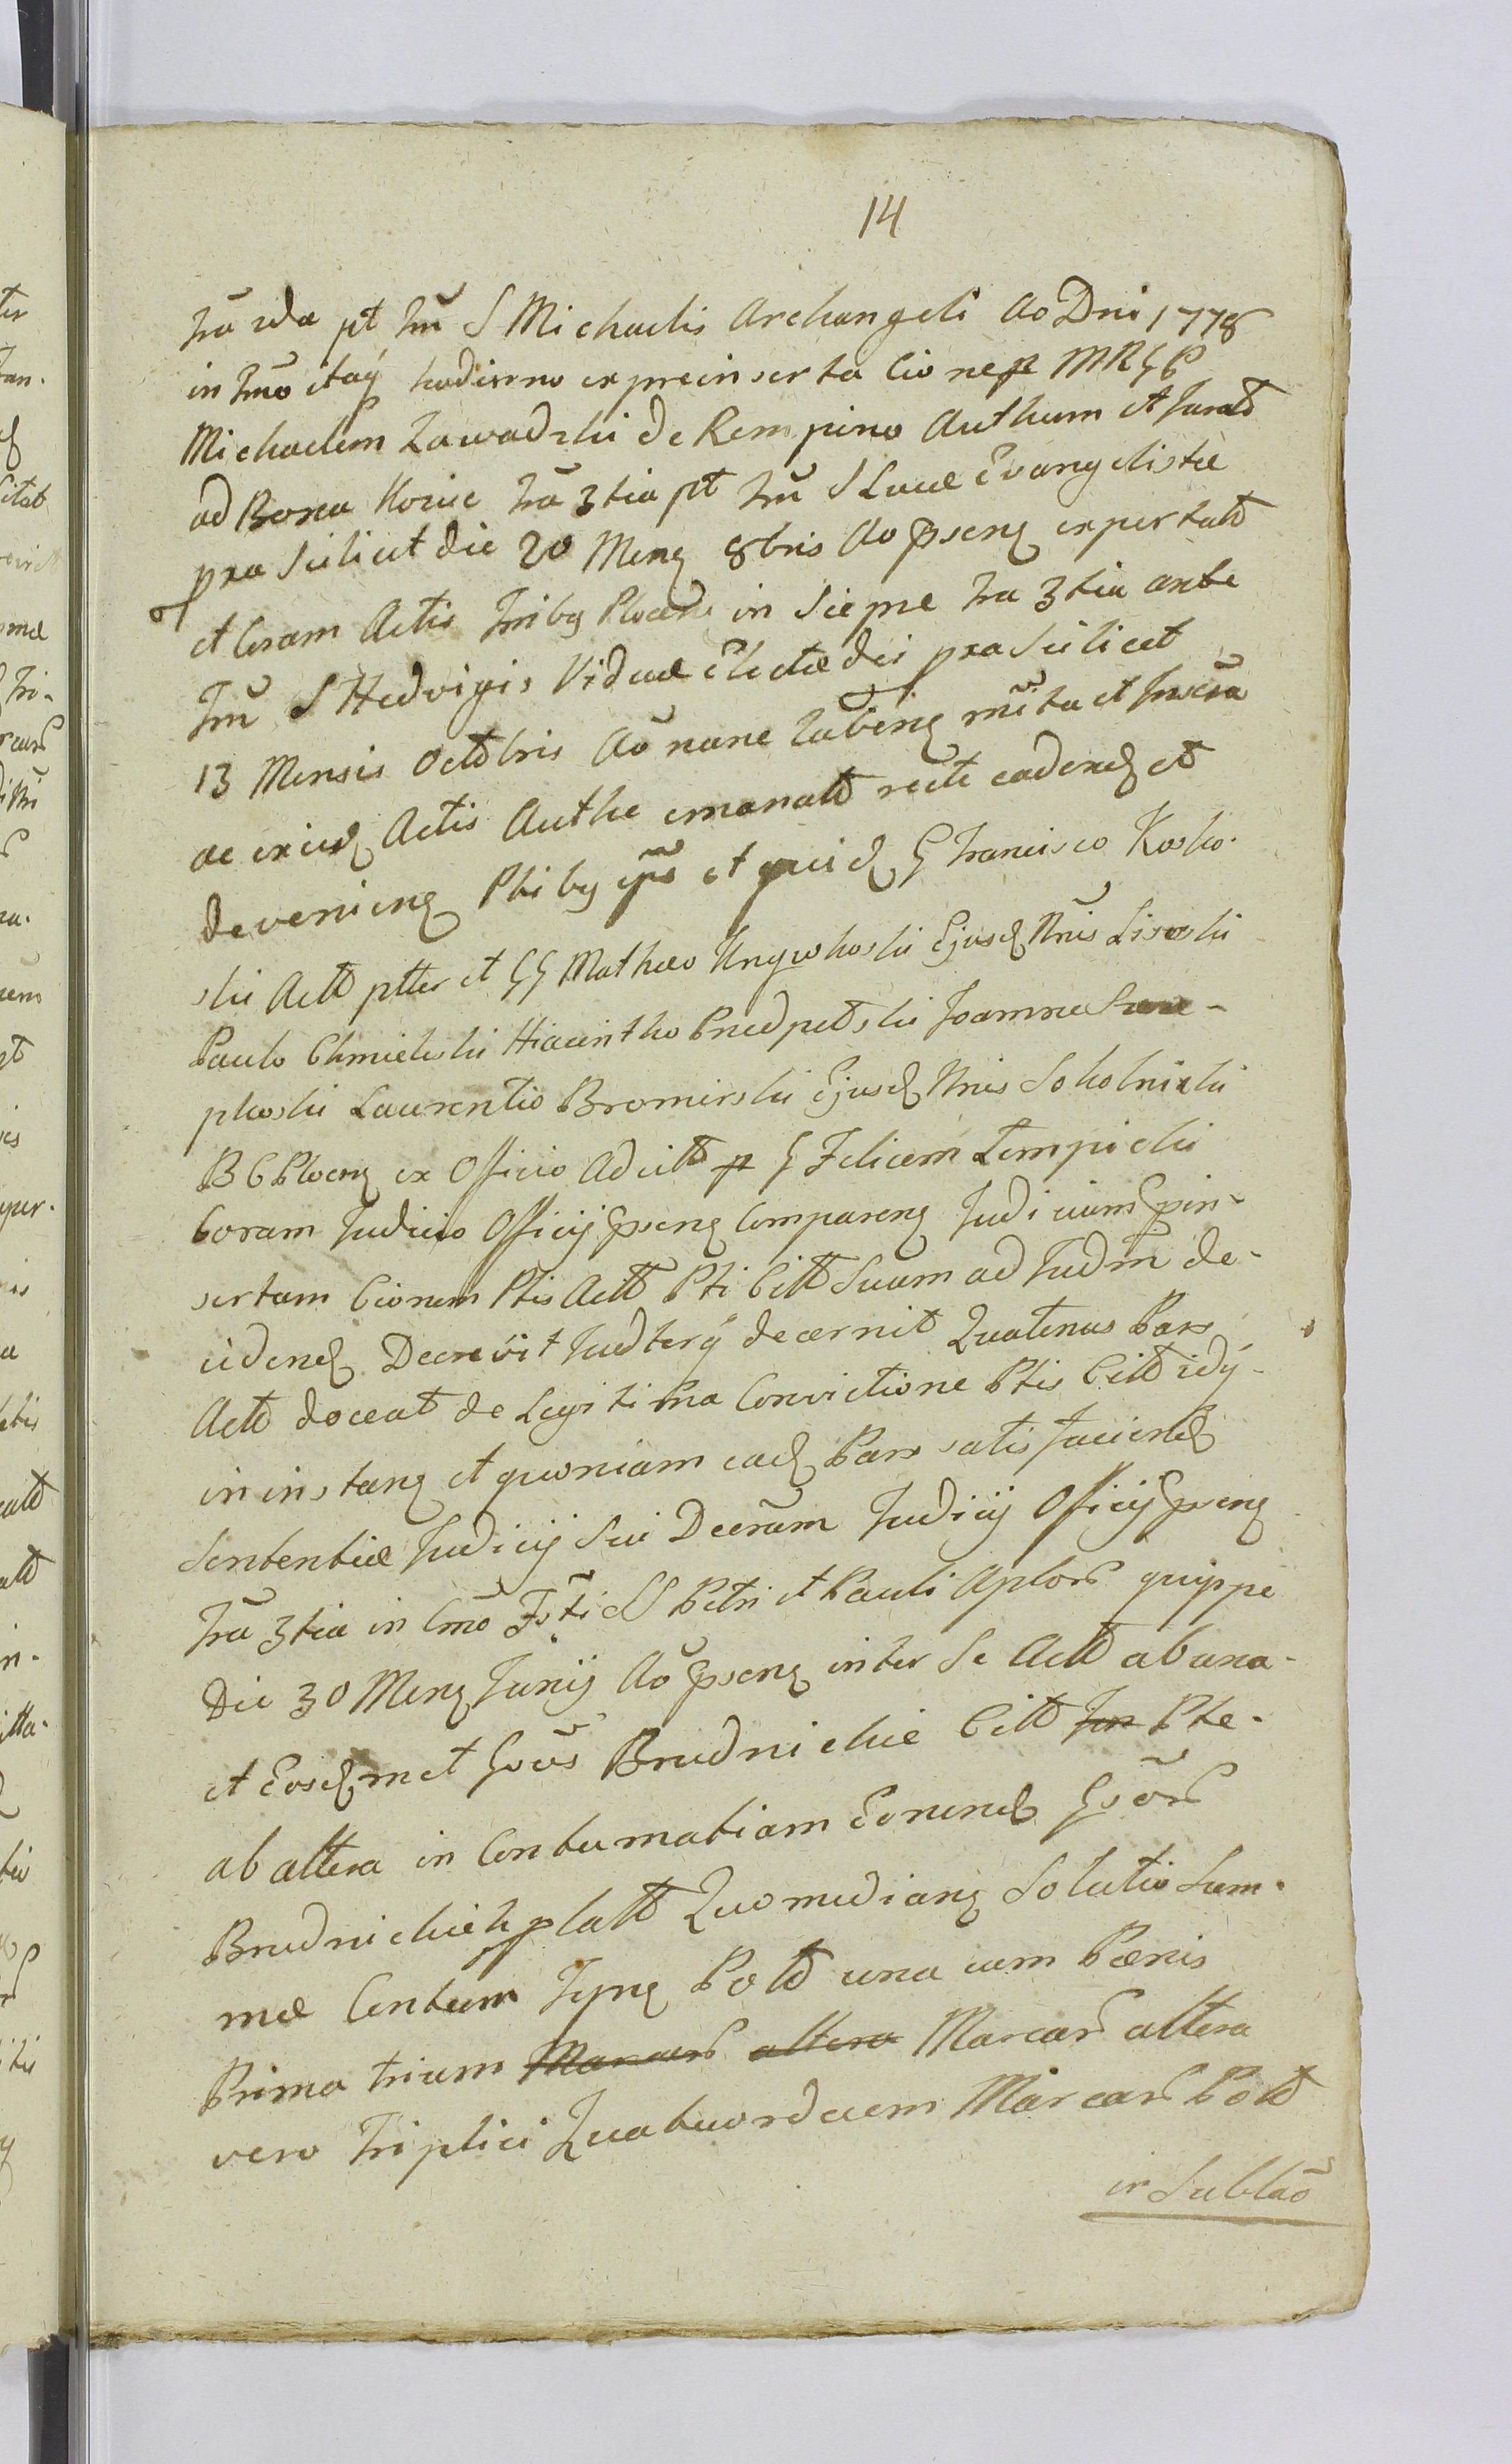 14
fra 2da pt frū S Michaelis Archangeli Ao Dni 1778
in frmo itaq hodierno ex preinserta Cione p MRGP
Michaelem Zawadzki de Rempino Authum et Jurat̄
ad Bona Kowie fra 3tia pt frū S Lucæ Evangelistæ
pra Scilicet die 20 Menʒ 8bris Ao Pṙsenʒ exportat̄
et Coram Actis Tribʒ Plocen in Siepne fra 3tia ante
frū S Hedvigis Viduæ Electæ dei pra Scilicet
13 Mensis Octobris Ao nunc Labenʒ
ac ex eisd Actis Authe emanat̄ recte cadend et
devenienʒ Ptibʒ ips̄ et quid G Francisco Kosko-
ski Act̄ ptter et GG Mathæo Ejusd Nnis Lisoski
Paulo Chmieleski Hiacintho Joanne
ploski Laurentio Bromirski Ejusd Nnis Sokolnicki
BG Plocenʒ ex Officio Adcitt̄ p G Felicem Lempicki
Coram Judicio Officij Pṙsenʒ Comparenʒ Judicium Prein-
sertam Cionem Ptis Act̄ Pti Citt̄ Suam ad Judm̄ de-
cidend Decrevit Judterq decernit Quatenus Pars
Act̄ doceat de Legitima Convictione Ptis Citt̄ idq
in instanʒ et quoniam ead Pars satisfaciend
Sententiæ Judicij Sui Decretum Judicij Officij Pṙsenʒ
fra 3tia in Crno Fsti SS Petri et Pauli Aplor̄ quippe
Die 30 Menʒ Junij Ao Pṙsenʒ inter Se Act̄ ab una
et Eosdmet Gsos Brudnickie Citt̄ Pte
ab altera in Contumatiam Eorund Gsor̄
Brudnickich plat̄ Quo medianʒ Solutio Sum-
mæ Centum Tynʒ Pol̄ una cum Pænis
Prima trium Marcar̄ altera Marcar̄ altera
vero Triplici Quatuordecem Marcar̄ Pol̄
in Subleō